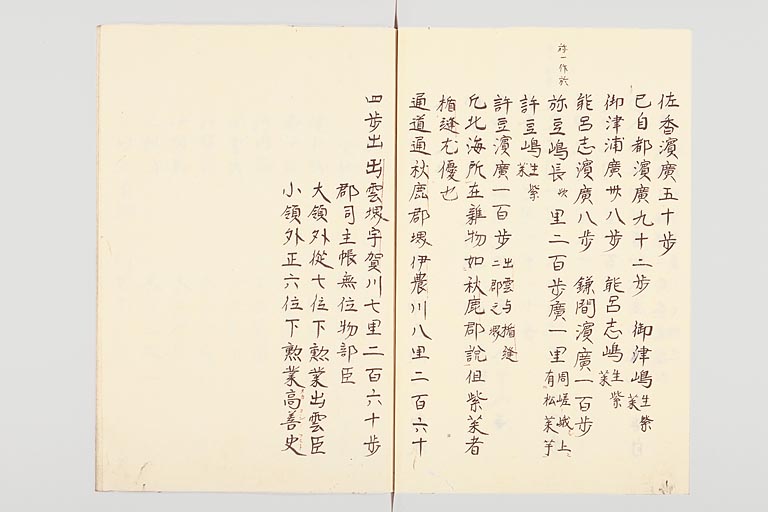 弥一作於
佐香濱廣五十歩
已自都濱廣九十二歩 御津嶋生紫菜
御津浦廣卅八歩 能呂志嶋生紫菜
能呂志濱廣八歩 鎌間濱廣一百歩
弥豆嶋長 里二百歩廣一里周嵯峨上有松菜芋
許豆嶋生紫菜
許豆濱廣一百歩出雲与楯縫二郡之堺
凡北海所在雜物如秋鹿郡說但紫菜者
楯縫尤優也
通道通秋鹿郡堺伊農川八里二百六十
四歩出出雲堺宇賀川七里二百六十歩
郡司主帳無位物部臣
大領外從七位下勲業出雲臣
小領外正六位下勲業高善史